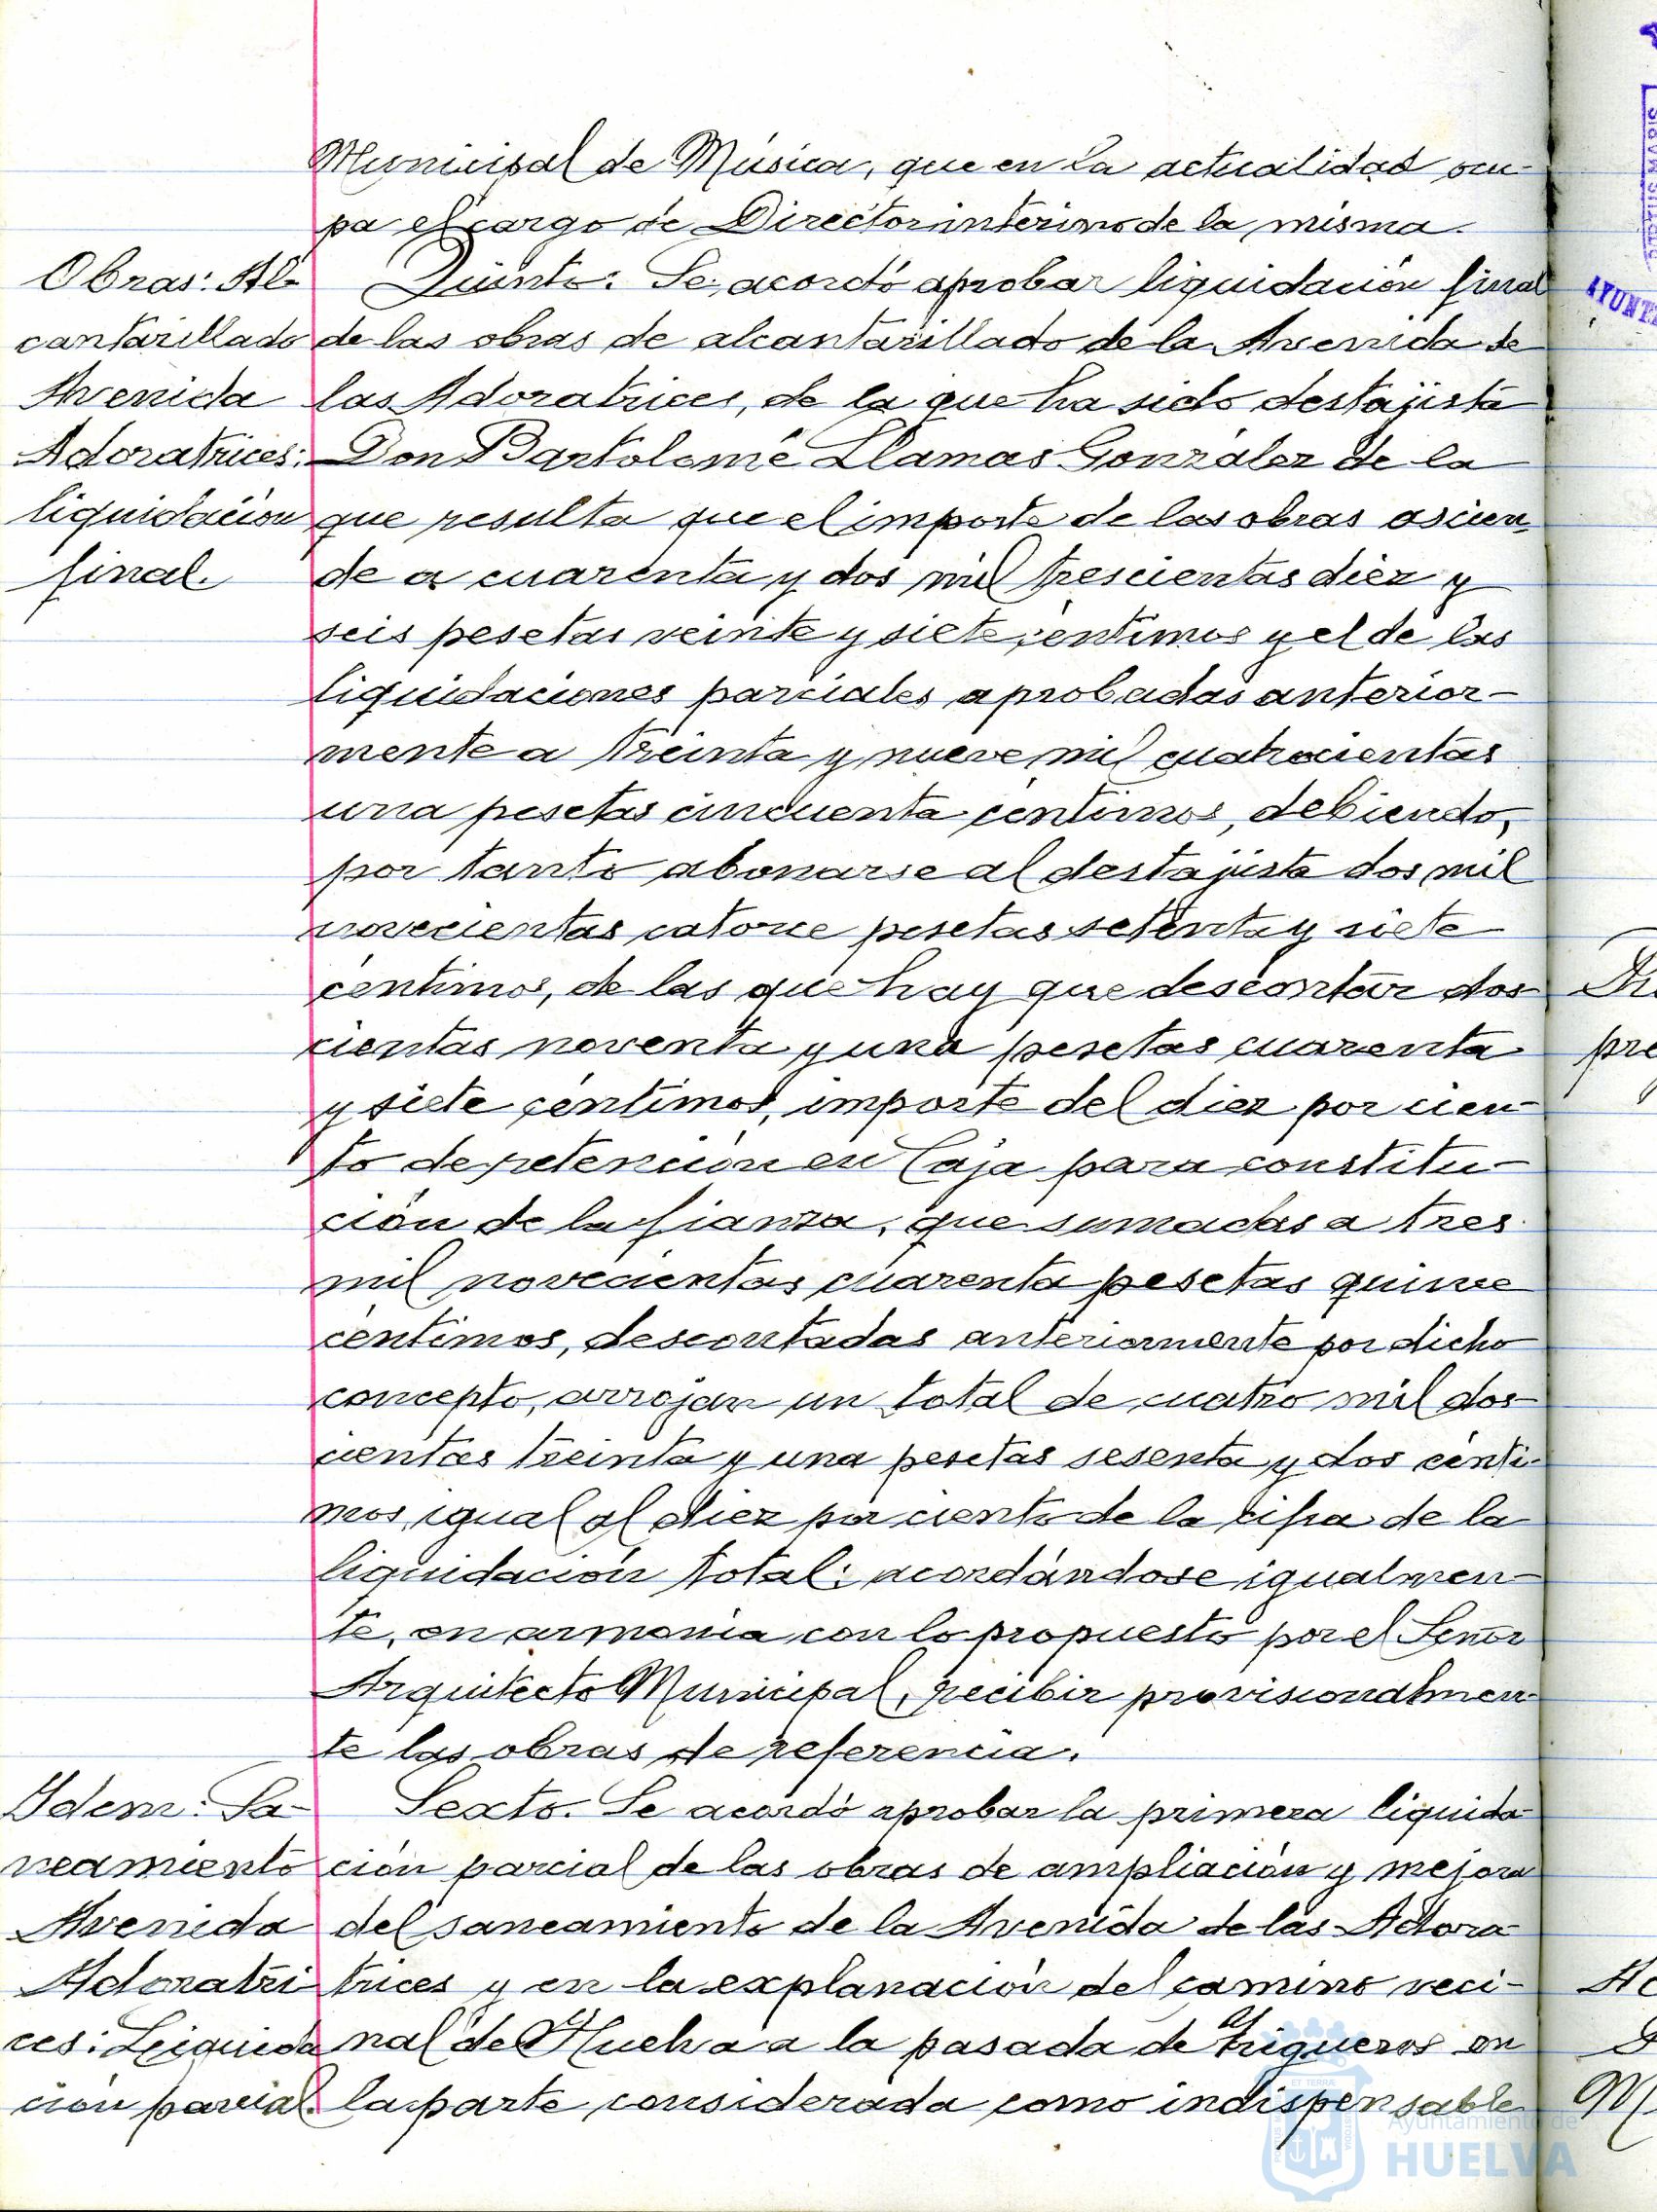 Municipal de Música, que en la actualidad ocu-
pa el cargo de Director interino de la misma.
Obras: Al-
cantarillado
Avenida
Adoratrices:
liquidación
final.
Quinto: Se acordó aprobar liquidación final
de las obras de alcantarillado de la Avenida de
las Adoratrices, de la que ha sido destajista
Don Bartolomé Llamas González de la
que resulta que el importe de las obras ascien-
de a cuarenta y dos mil trescientas diez y
seis pesetas veinte y siete céntimos y el de las
liquidaciones parciales aprobadas anterior-
mente a treinta y nueve mil cuatrocientas
una pesetas cincuenta céntimos, debiendo,
por tanto abonarse al destajista dos mil
novecientas catorce pesetas setenta y siete
céntimos, de las que hay que descontar dos-
cientas noventa y una pesetas cuarenta
y siete céntimos, importe del diez por cien-
to de retención en Caja para constitu-
ción de la fianza, que sumadas a tres
mil novecientas cuarenta pesetas quince
céntimos, descontadas anteriormente por dicho
concepto, arrojan un total de cuatro mil dos-
cientas treinta y una pesetas sesenta y dos cénti-
mos, igual al diez por ciento de la cifra de la
liquidación total; acordándose igualmen-
te, en armonía con lo propuesto por el Señor
Arquitecto Municipal, recibir provisionalmen-
te las obras de referencia.
Idem: Sa-
neamiento
Avenida
Adoratri
ces: Liquida
ción parcial.
Sexto. Se acordó aprobar la primera liquida-
ción parcial de las obras de ampliación y mejora
del saneamiento de la Avenida de las Adora-
trices y en la explanación del camino veci-
nal de Huelva a la pasada de Trigueros en
la parte considerada como indispensable
pre
AYUNT
PORTUS MARIS
Ayuntamiento de
HUELVA